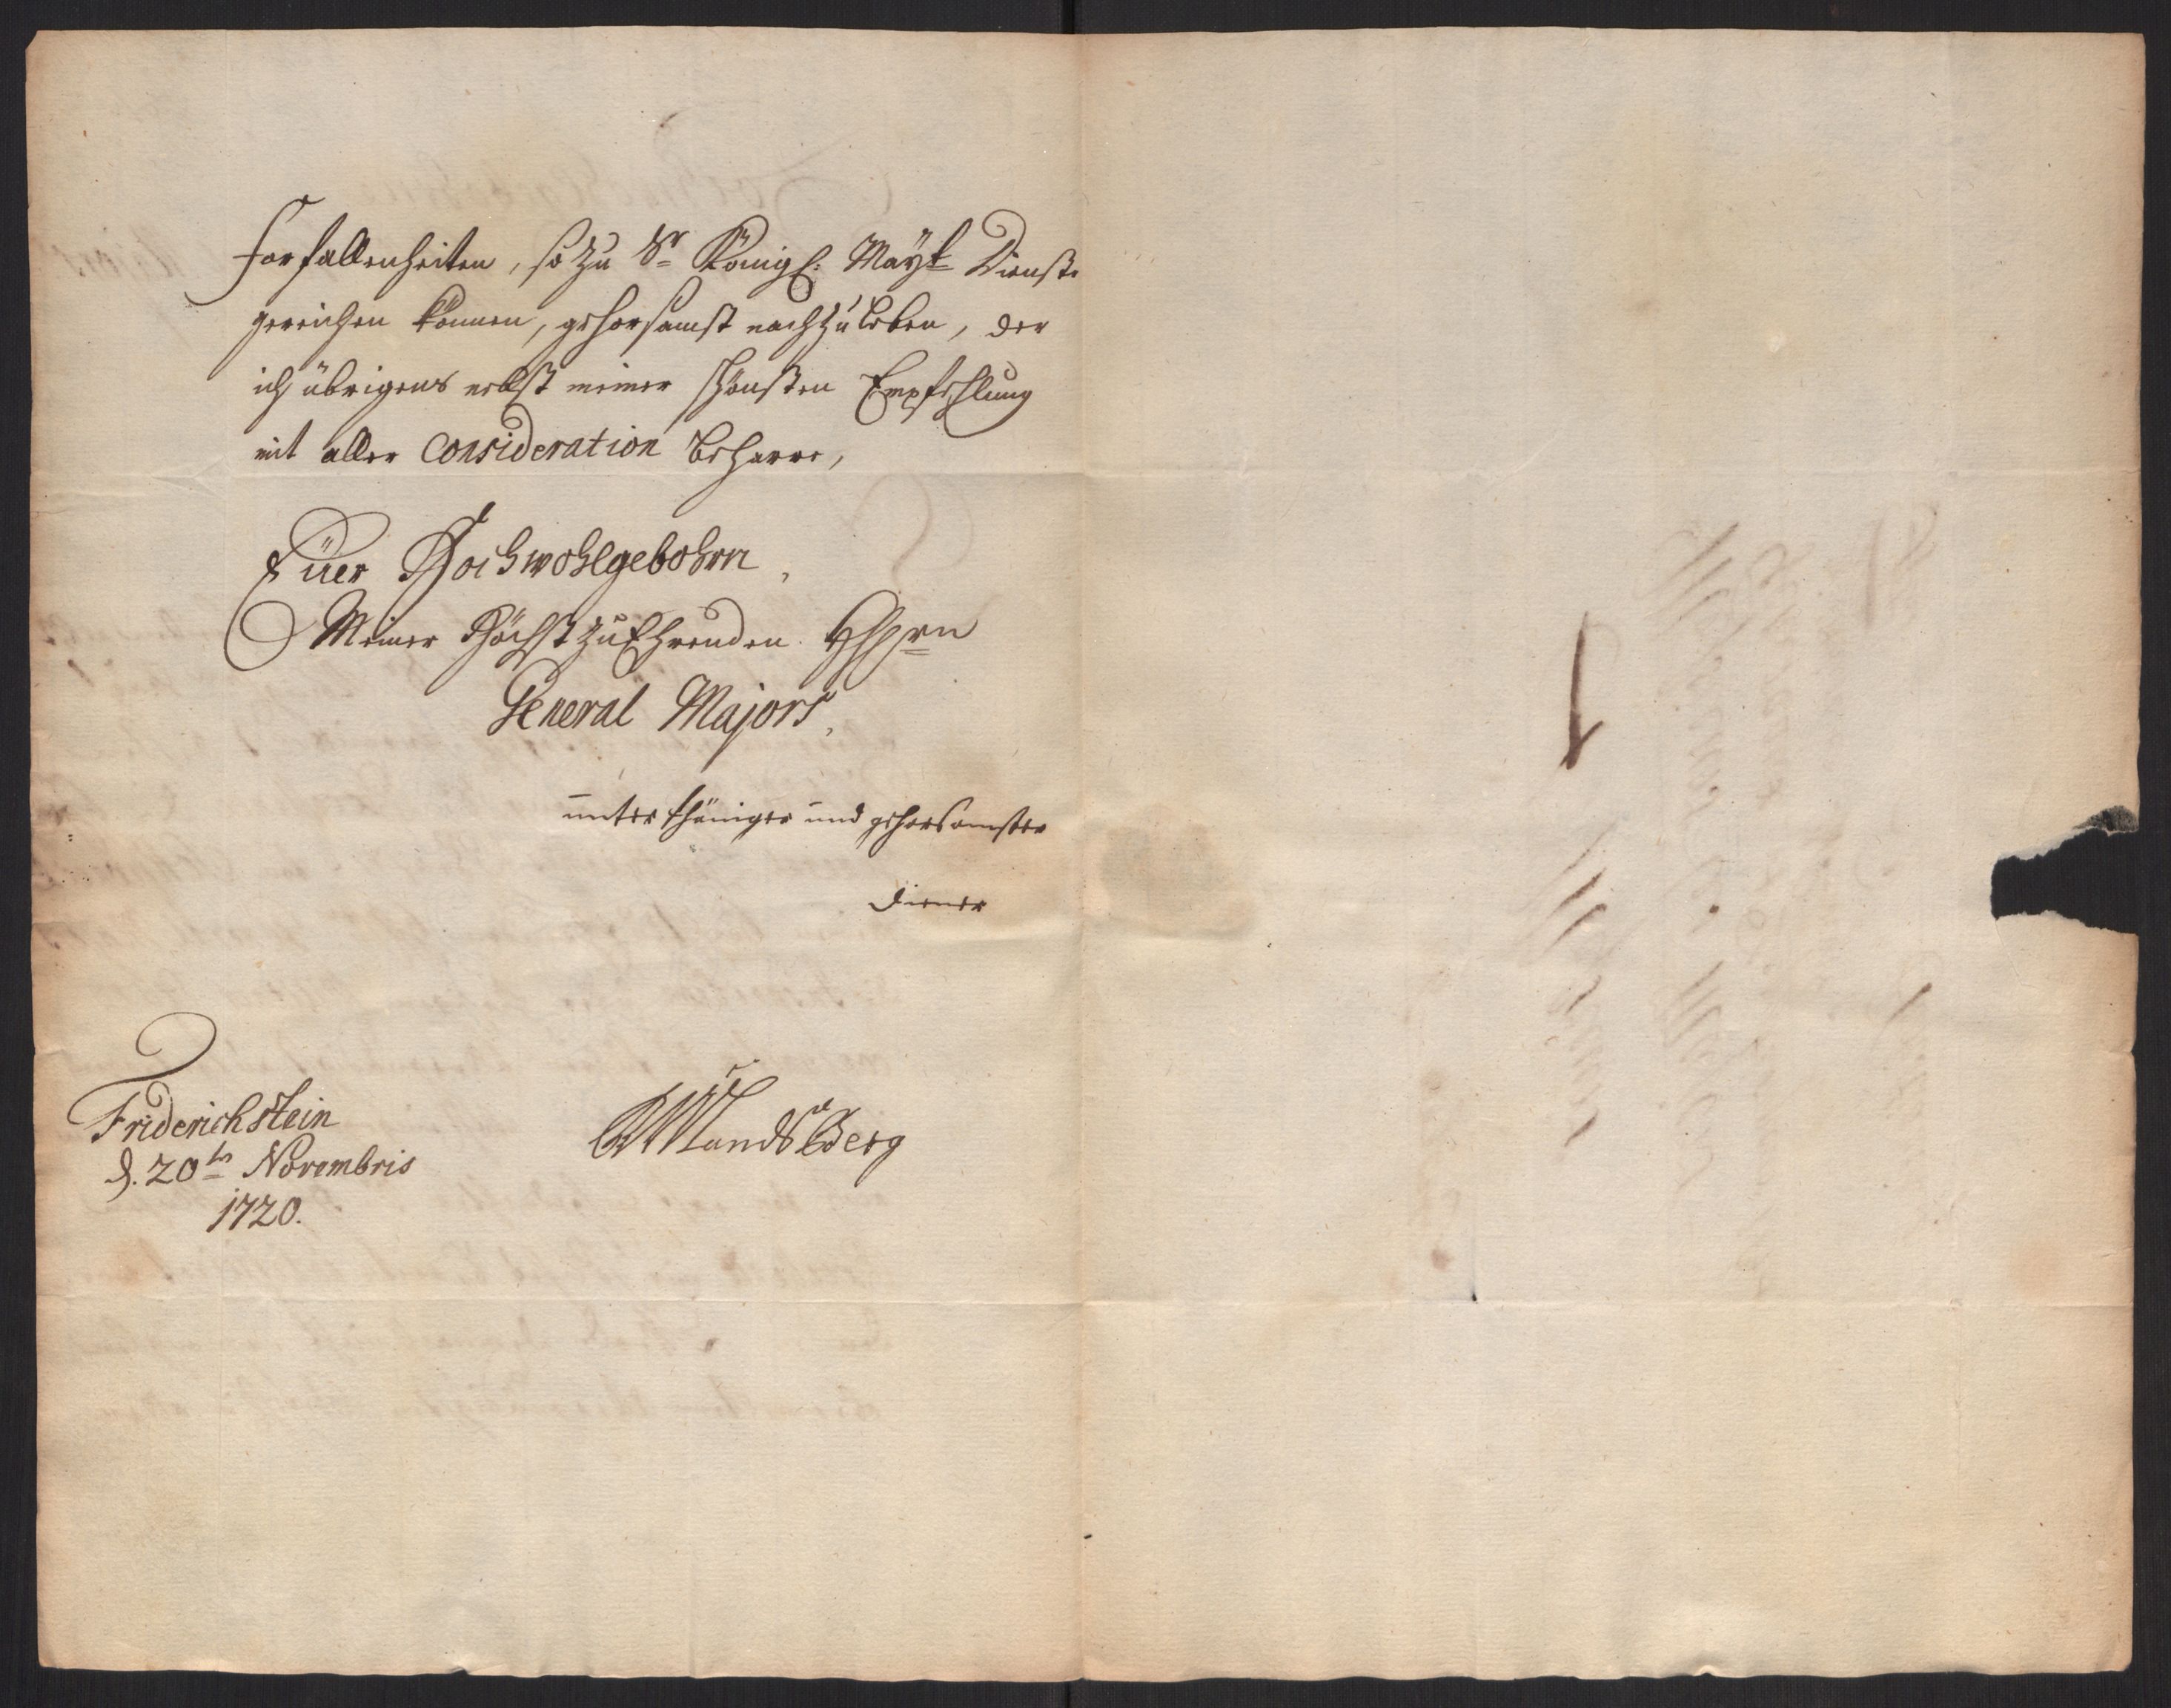 forfallenheiten, so zu Sr Königl: Mayt Dienste
gereichen können, gehorsamst nachzuleben, der
ich übrigens nebst meiner schönsten Empfehlung
mit aller Consideration beharre,
Eüer Hochwohlgebohrn,
Meiner Höchstzuehrenden Herrn
General Majors,
unterthäniger und gehorsamster
diener
Friderichstein
d. 20tn Novembris
1720.
Landsberg